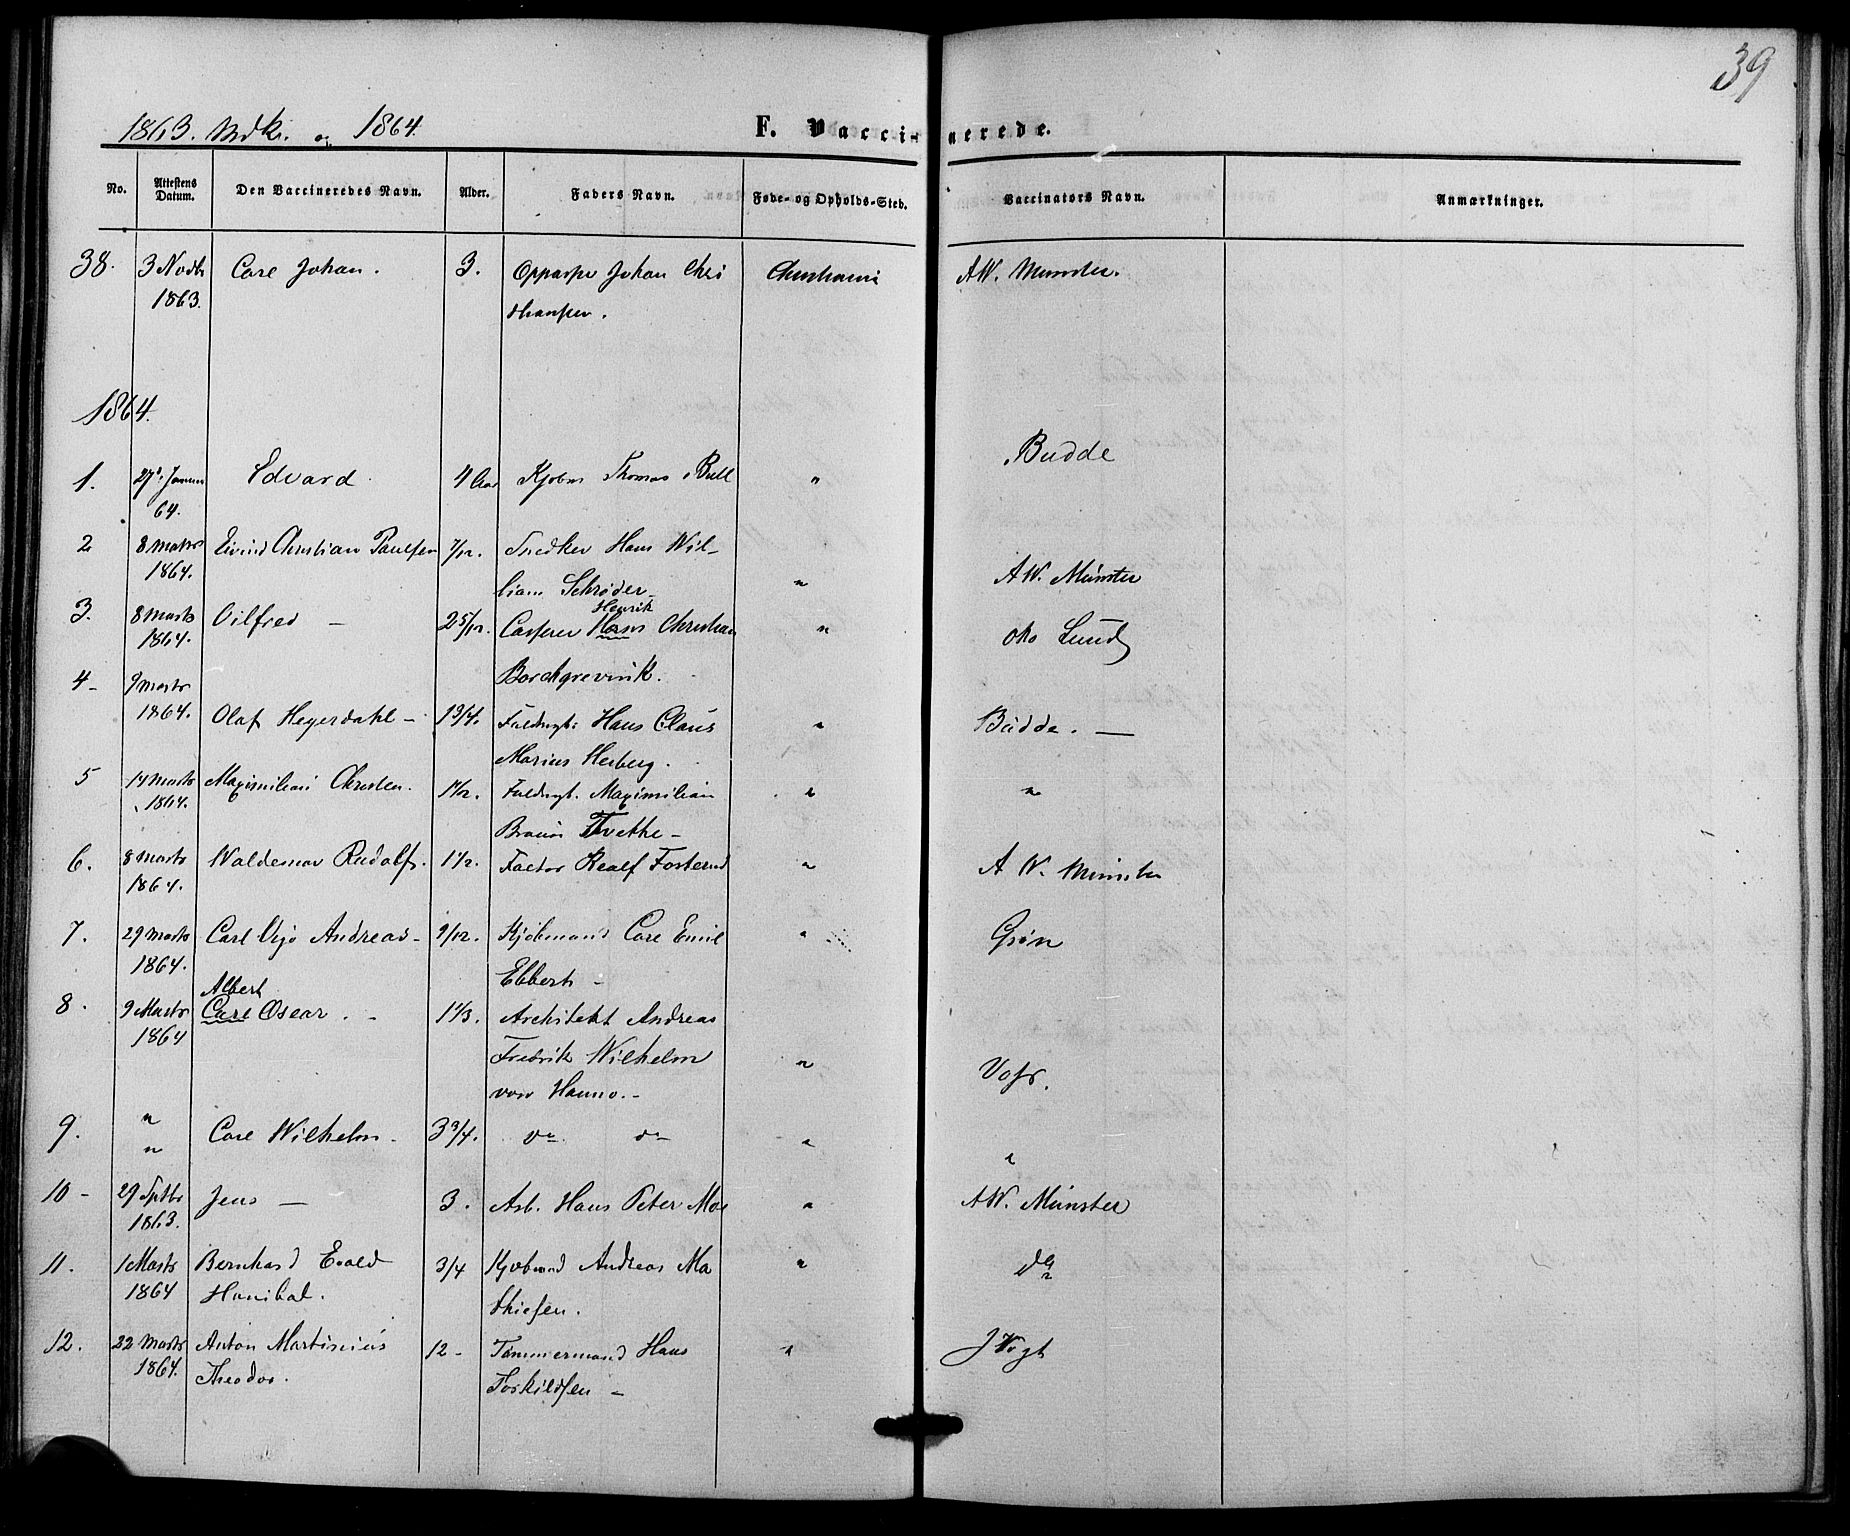 39
1863. Mdk. og 1864.
F. Vaccinerede.
No. Attestens Datum. Den Vaccineredes Navn. Alder. Faders Navn. Føde- og Opholds-Sted. Vaccinators Navn. Anmærkninger.
38. 3 Novbr Carl Johan. 3. Oppasser Johan Chri Christiania AW. Munster.
1863. sthansen.
1864.
1. 27. Januar Edvard. 4 Aar Kjøbm Thomas Bull " Budde
64.
2 8 Marts Eivind Christian Paulsen 7/12. Snedker Hans Wil-
1864. liam Schrøder " AW. Münster
Henrik
3. 8 Marts Vilfred - 2 5/12. Casserer Hans Christian " Lund
1864. Borchgrevink.
4- 9 Marts
1864. Olaf Heyerdahl - 1 3/4. Fuldmgt. Hans Claus " Budde. -
Marius Herberg.
5 14 Marts Maximilian Christen. 1 1/2. Fuldmgt. Maximilian " "
1864. Braun Tvethe -
6. 8 Marts Waldemar Rudolf. 1 1/2. Factor Realf Fosterud " A W. Münster
1864.
7. 29 Marts Carl Andreas - 9/12. Kjøbmand Carl Emil " Grøn
1864. Ebbert -
Albert
8. 9 Marts Carl Oscar. - 1 1/3. Architekt Andreas
1864 Fredrik Wilhelm " Voss.
von Hanno. -
9. " Carl Wilhelm - 3 3/4. do do " "
"
10 - 29 Sptbr Jens - 3. Arb. Hans Peter Moe " AW. Münster
1863.
11. 1 Marts Bernhard Evald 3/4 Kjøbmand Andreas Ma " do
1864 Hanibal. thiesen.
12. 22 Marts Anton Martinius 12 - Tømmermand Hans " J Vogt
1864. Theodor. Torkildsen -